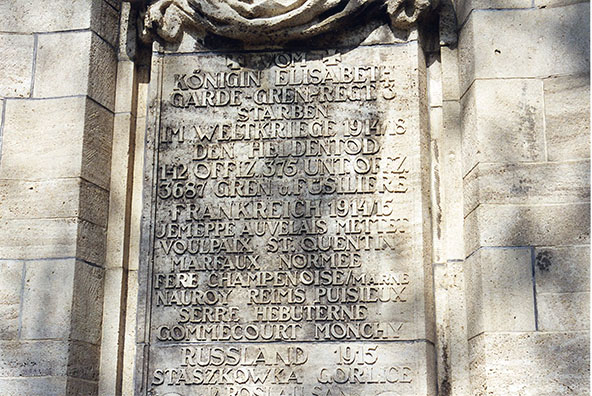 VOM
KÖNIGIN ELISABETH
GARDE-GREN-REGT 3
STARBEN
IM WELTKRIEGE 1914/18
DEN HELDENTOD
142 OFFIZ 375 UNTOFFZ
3687 GREN u. FÜSILIERE
FRANKREICH 1914/15
JEMEPPE AUVELAIS METTET
VOULPAIX ST. QUENTIN
MARFAUX NORMEE
FERE CHAMPENOISE/MARNE
NAUROY REIMS PUISIEUX
SERRE HEBUTERNE
GOMMECOURT MONCHY
RUSSLAND 1915
STASZKOWKA GORLICE
JAROSLAU SAN